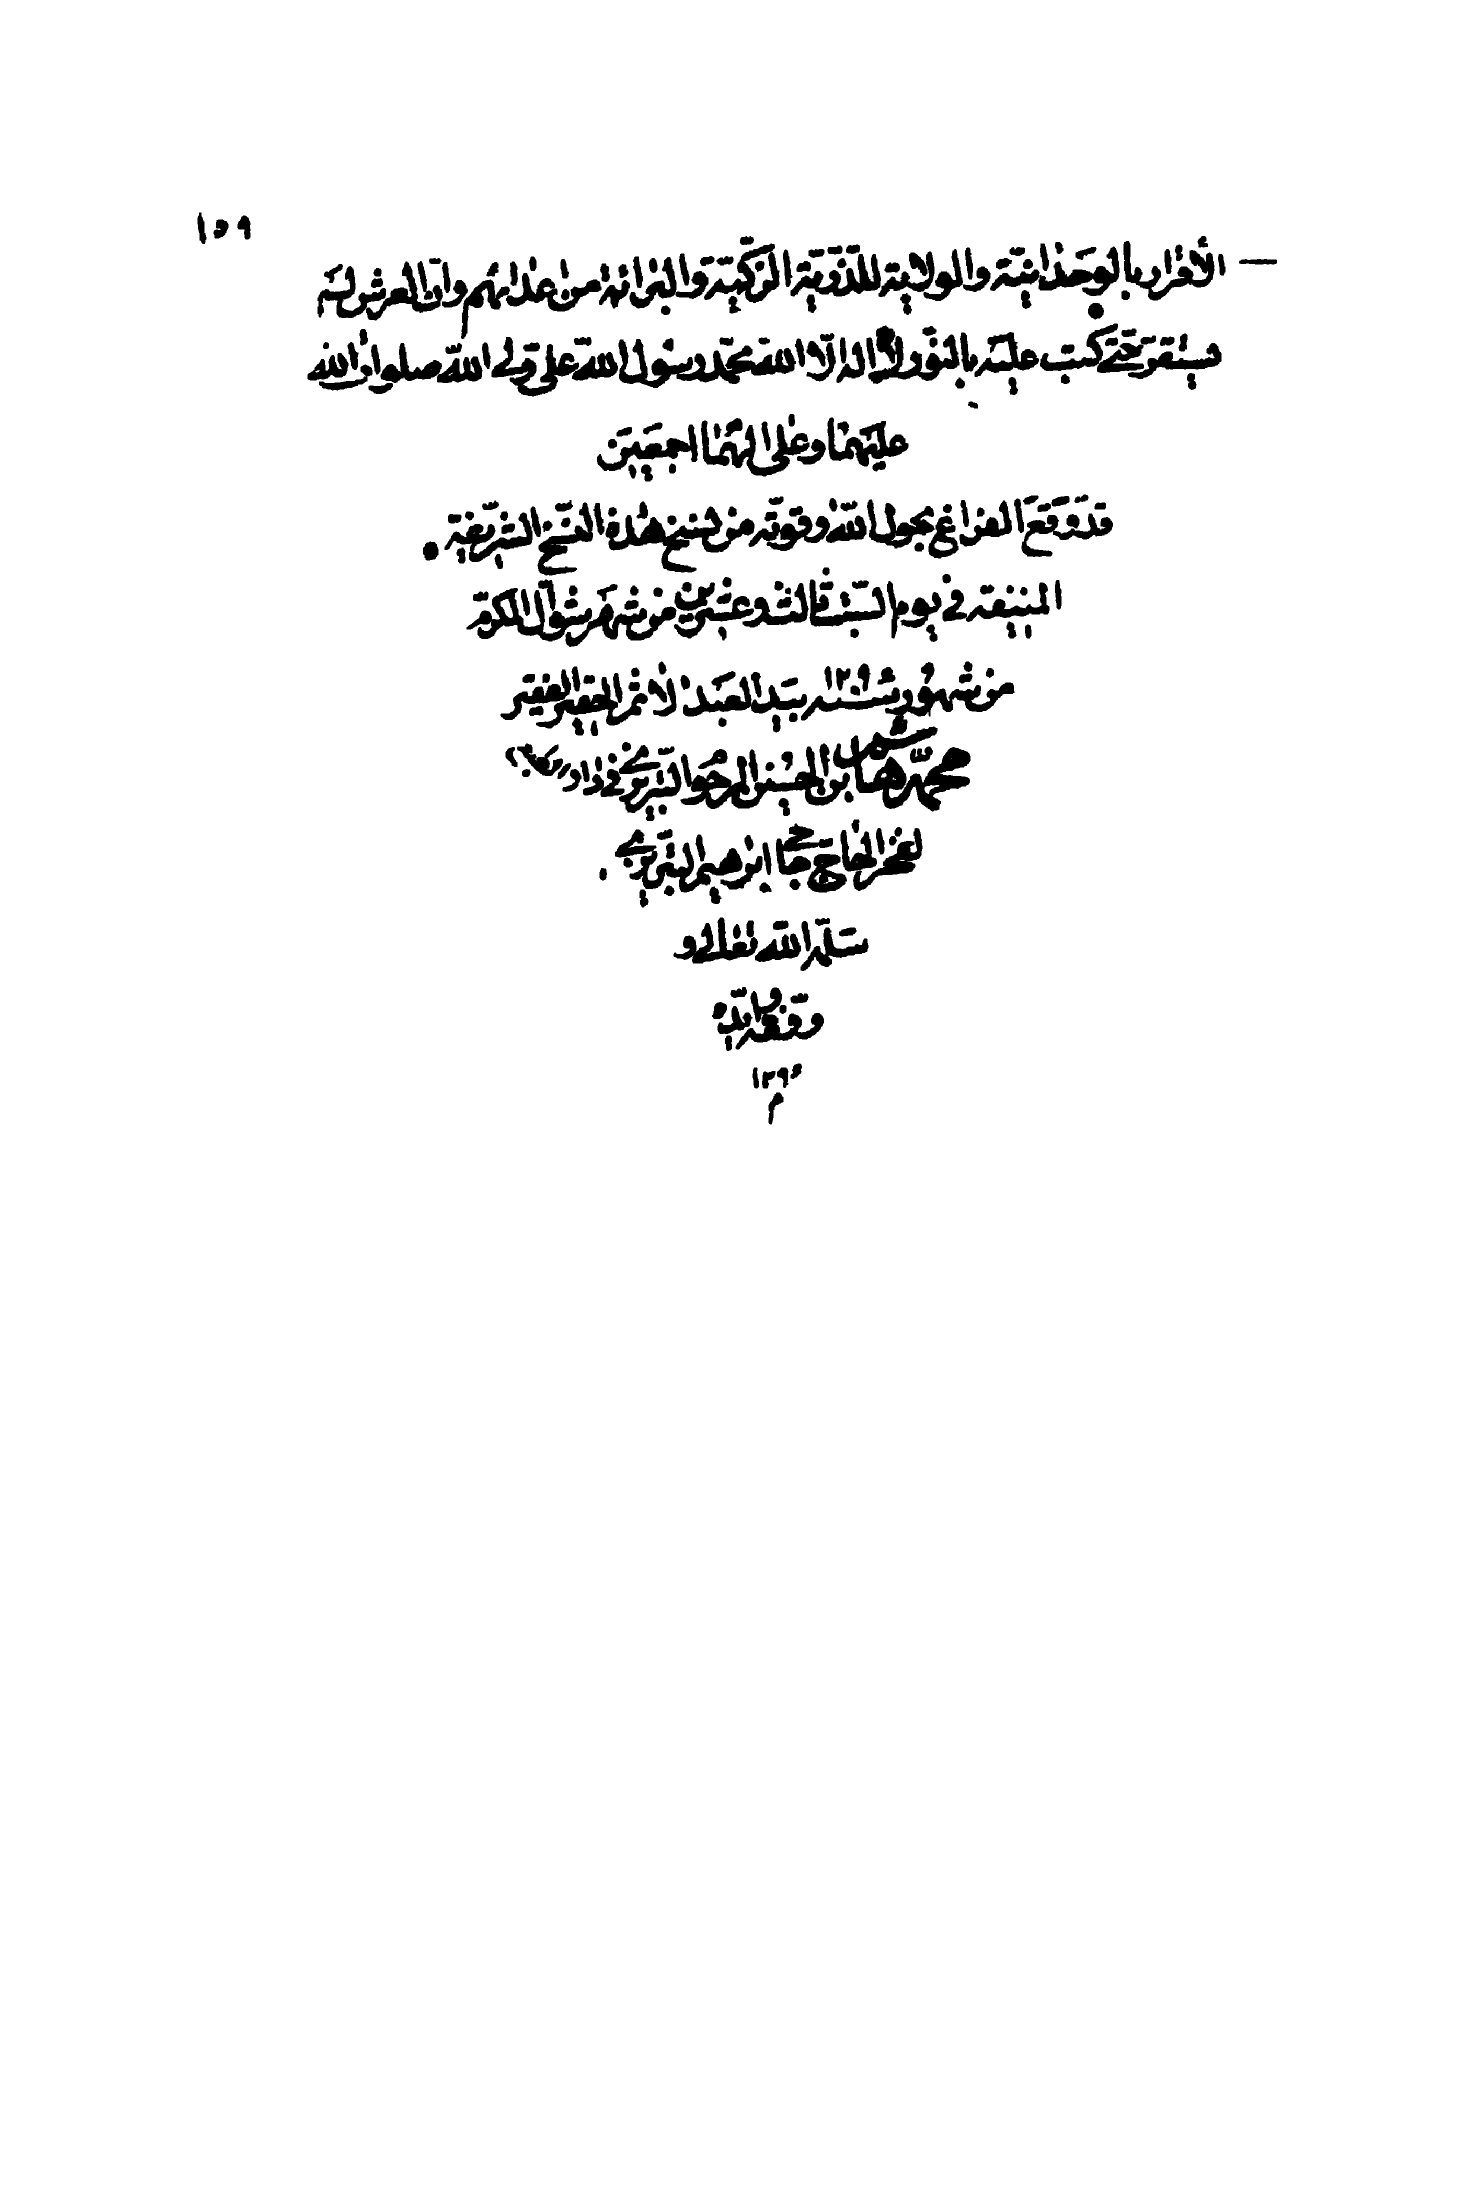 ١٥٩
الأقرار بالوحدانيّة والولاية للذريّة الزكيّة والبرائة من اعدائهم وان العرش لم
يستقر حتى كتب عليه بالنور لا اله الّا الله محمّد رسول الله على ولي الله صلوات الله
عليهما وعلى الهما اجمعين
قد وقع الفراغ بحول الله وقوته من نسخ هذه النسخ الشريفة
المنيفة في يوم السبت ثالث وعشرين من شهر شوال المكرم
من شهور سنه ١٢٩٠ بيد العبد الاثم الحقير الفقير
محمد هاشم ابن الحسين المرحوم التبريزي في دار
لفخر الحاج حاجي ابرهيم التبريزي
سلمه الله تعالى و
وفقه وايده
١٢٩٠
م